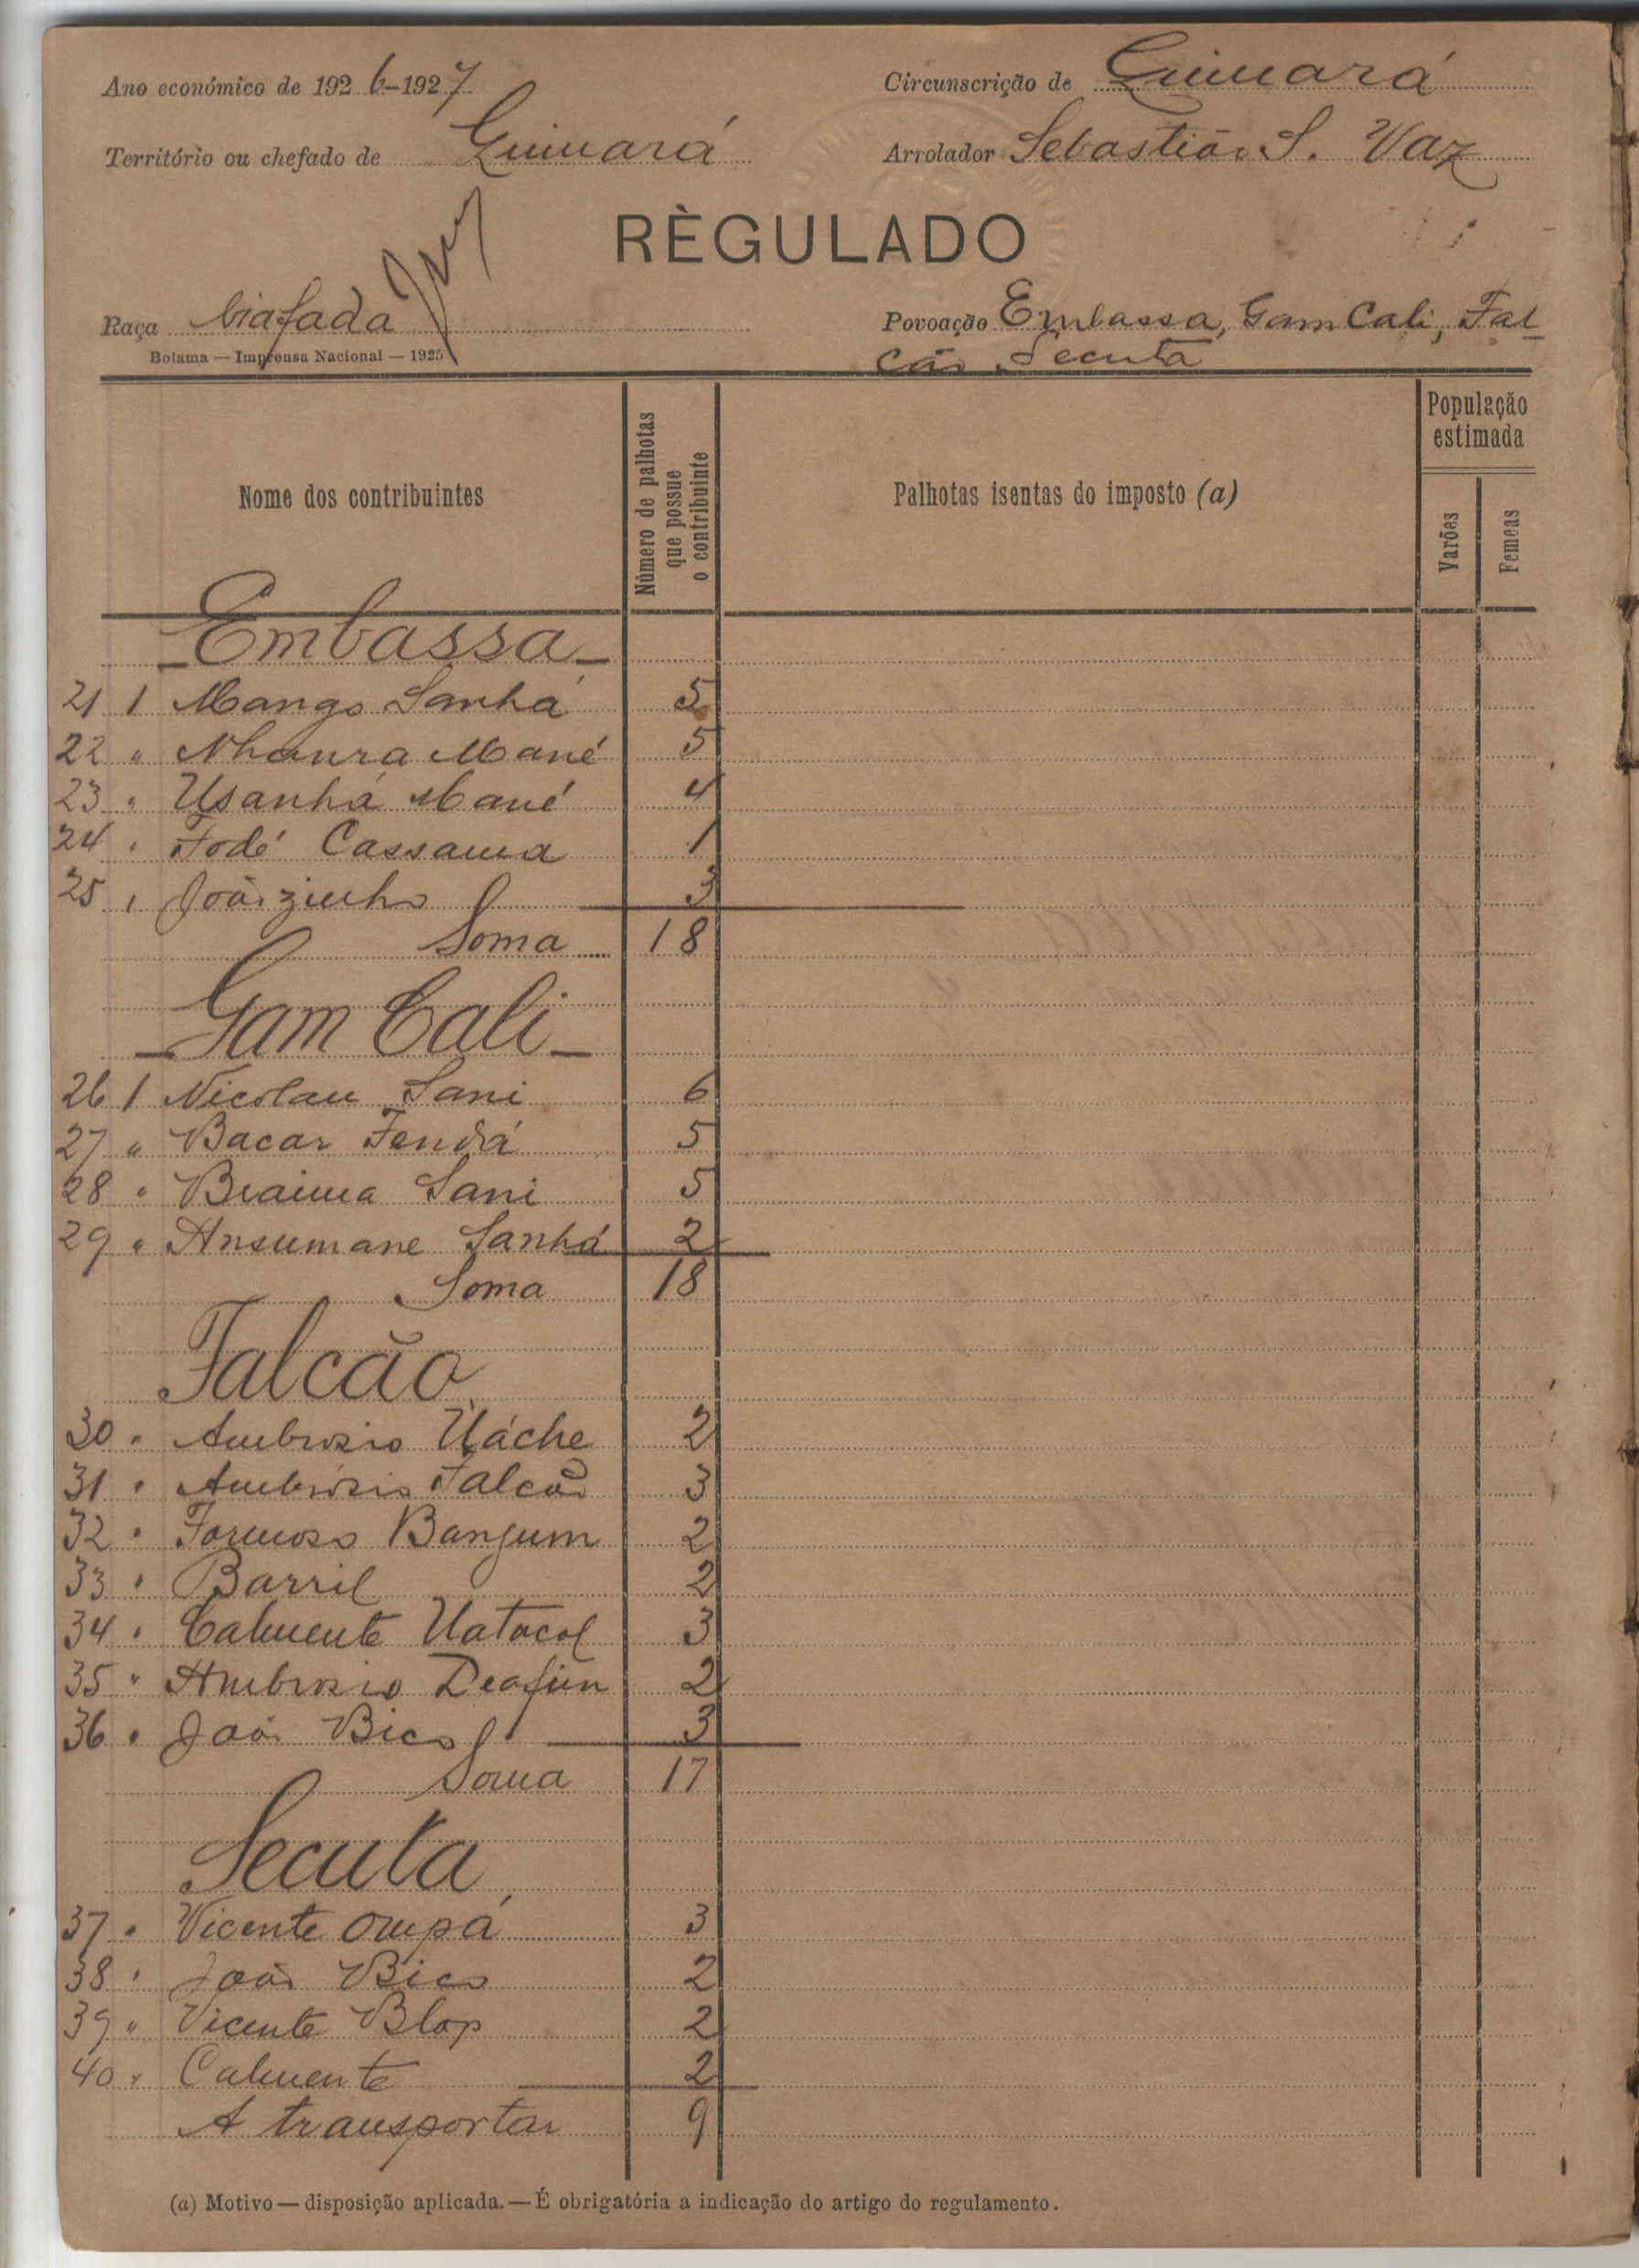 Ano económico de 1926-1927
Circunscrição de Quinará
Território ou chefado de Quinará
Arrolador Sebastião S. Vaz
RÈGULADO
Raça biafada
Povoação Embassa, Gam Cali, Fal
cão Secuta
Bolama — Imprensa Nacional — 1925
Nome dos contribuintes
Número de palhotas que possue o contribuinte
Palhotas isentas do imposto (a)
População estimada
Varões
Femeas
Embassa
21 1 Mango Sanhá 5
22 " Nhanra Mané 5
23 " Usanhá Mané 4
24 " Fodé Cassama 1
25 " Joãozinho 3
Soma 18
Gam Cali
26 1 Nicolau Sani 6
27 " Bacar Fendá 5
28 " Braima Sani 5
29 " Ansumane Sanhá 2
Soma 18
Falcão
30 " Ambrosio Uáche 2
31 " Ambrósio Falcão 3
32 " Formoso Banjum 2
33 " Barril 2
34 " Calmente Uatacol 3
35 " Ambrosio Deafun 2
36 " João Bico 3
Soma 17
Secuta
37 " Vicente Ompá 3
38 " João Bico 2
39 " Vicente Blop 2
40 " Calmente 2
A transportar 9
(a) Motivo — disposição aplicada. — É obrigatória a indicação do artigo do regulamento.